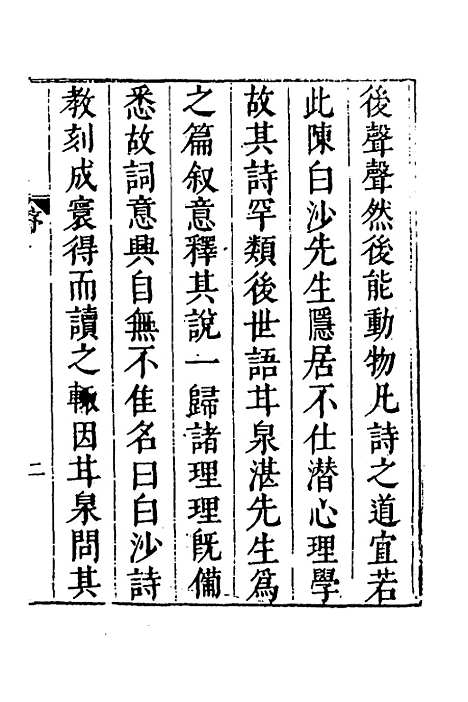 後聲聲然後能動物凡詩之道宜若
此陳白沙先生隱居不仕潜心理學
故其詩罕類後世語甘泉湛先生爲
之篇叙意釋其說一歸諸理理既備
悉故詞意興自無不隹名曰白沙詩
教刻成寰得而讀之輙因甘泉問其
序
二